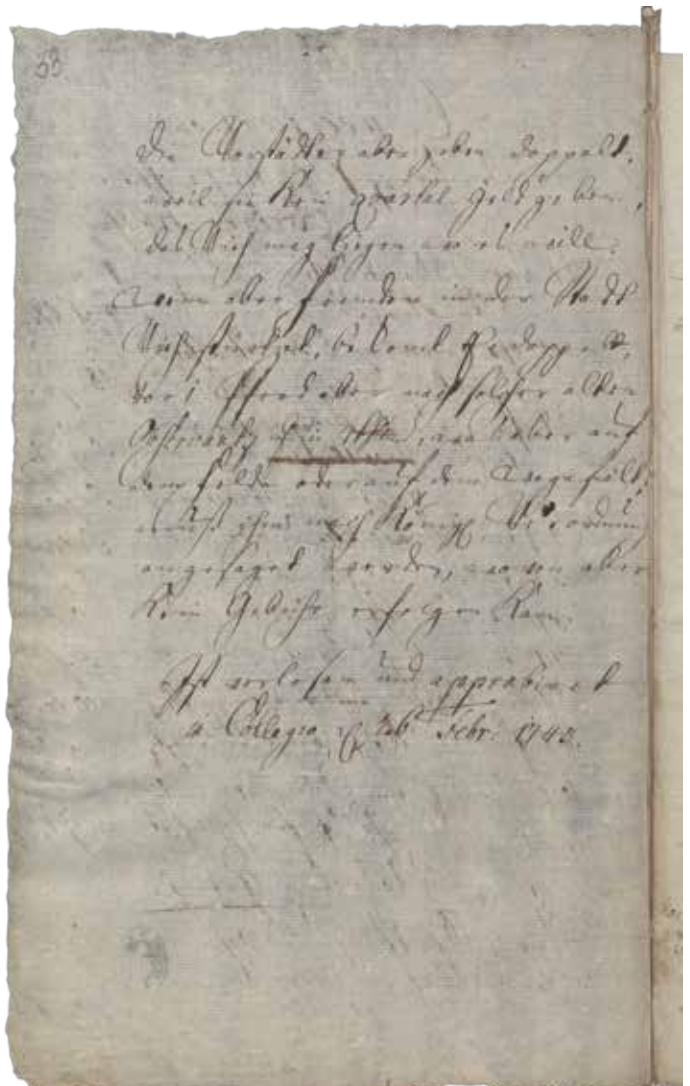 53
Die Vorstädter aber geben doppelt,
weil sie kein quartal Geld geben,
das Vieh mag liegen wo es will.
Wenn aber Fremden in der Stadt
Vieh, bekomt Er doppelt,
vor 1 Pferd aber nach solcher alten
was aber auf
dem Felde oder auf dem Wege fält,
muß ihm nach Königl. Verordnung
angesaget werden, wovon aber
kein Gebühr erfolgen kan.
Ist verlesen und approbiret
a Collegio d. Febr. 174